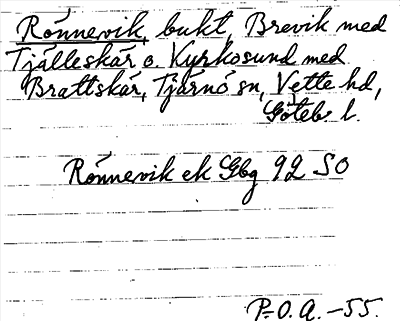 Rönnevik, bukt, Brevik med
Tjälleskär o. Kyrkosund med
Brattskär, Tjärnö sn, Vette hd,
Göteb. l.
Rönnevik ek Gbg 92 SO
P.-O. A. -55.